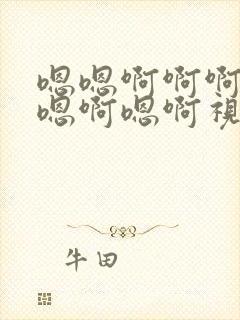 嗯嗯啊啊啊
嗯啊嗯啊視
牛田